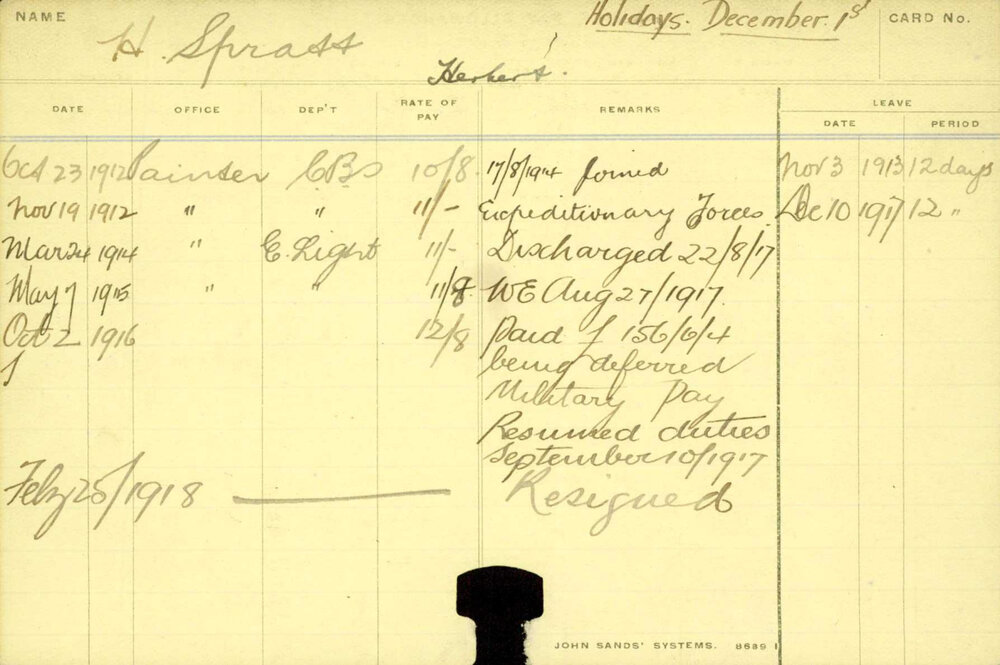 NAME
Holidays. December 1st
CARD No.
H. Spratt
Herbert.
DATE OFFICE DEP'T RATE OF PAY REMARKS LEAVE
DATE PERIOD
Oct 23 1912 Painter CBs 10/8 17/8/1914 Joined Nov 3 1913 12 days
Nov 19 1912 " " 11/- Expeditionary Forces. Dec 10 1917 12 "
Mar 24 1914 " E. Light 11/- Discharged 22/8/17
May 7 1915 " " 11/8 WE Aug 27/1917.
Oct 2 1916 12/8 Paid £ 156/6/4
being deferred
Military Pay
Resumed duties
September 10/1917
Feby 25/1918 Resigned
JOHN SANDS' SYSTEMS. 8689